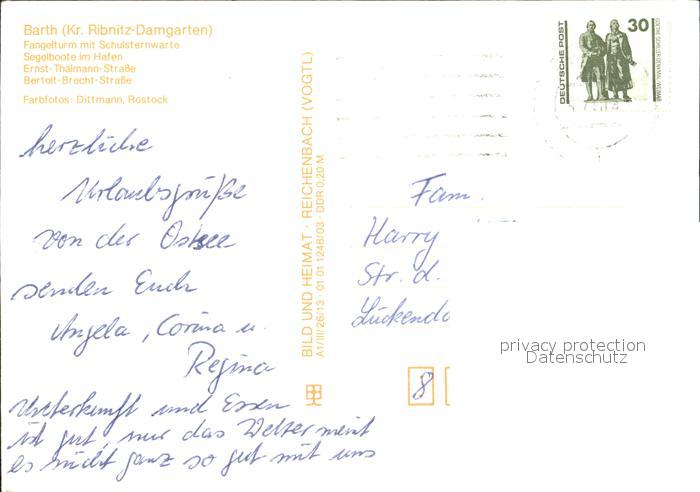 Barth (Kr. Ribnitz-Damgarten)
Fangelturm mit Schulsternwarte
Segelboote im Hafen
Ernst-Thälmann-Straße
Bertolt-Brecht-Straße
Farbfotos: Dittmann, Rostock
herzliche
Urlaubsgrüße
von der Ostsee
senden Euch
Angela, Corina u.
Regina
Unterkunft und Essen
ist gut, nur das Wetter meint
es nicht ganz so gut mit uns
BILD UND HEIMAT · REICHENBACH (VOGTL)
A1/III/26/13 · 01 01 1248/03 · DDR 0,20 M
DEUTSCHE POST
30
GOETHE-SCHILLER-DENKMAL WEIMAR
Fam.
Harry
Str. d.
Lückendo
8
privacy protection
Datenschutz